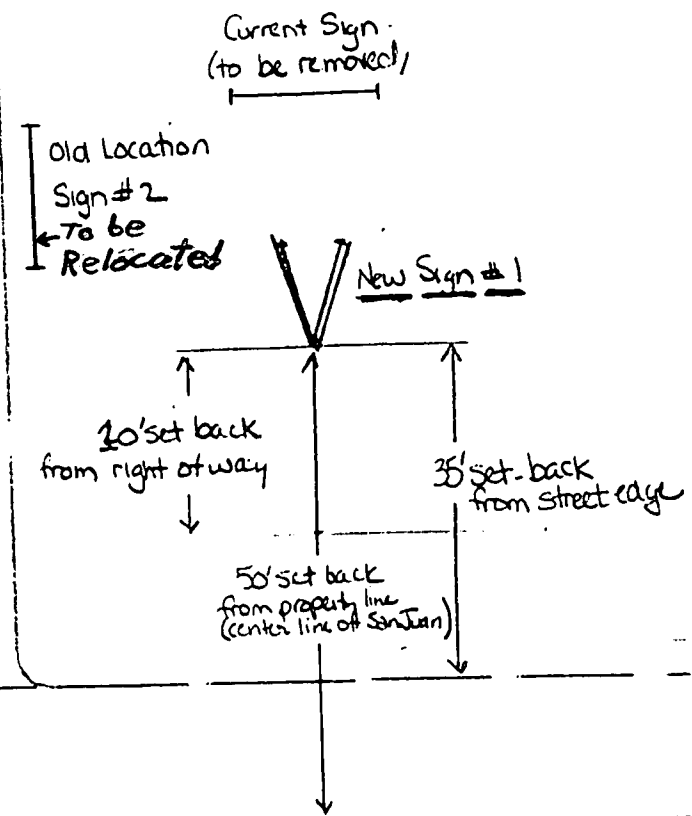 Current Sign.
(to be removed)
Old Location
Sign #2
To be
Relocated
New Sign #1
10' set back
from right of way
35' set-back
from street edge
50' set back
from property line
(center line of San Juan)